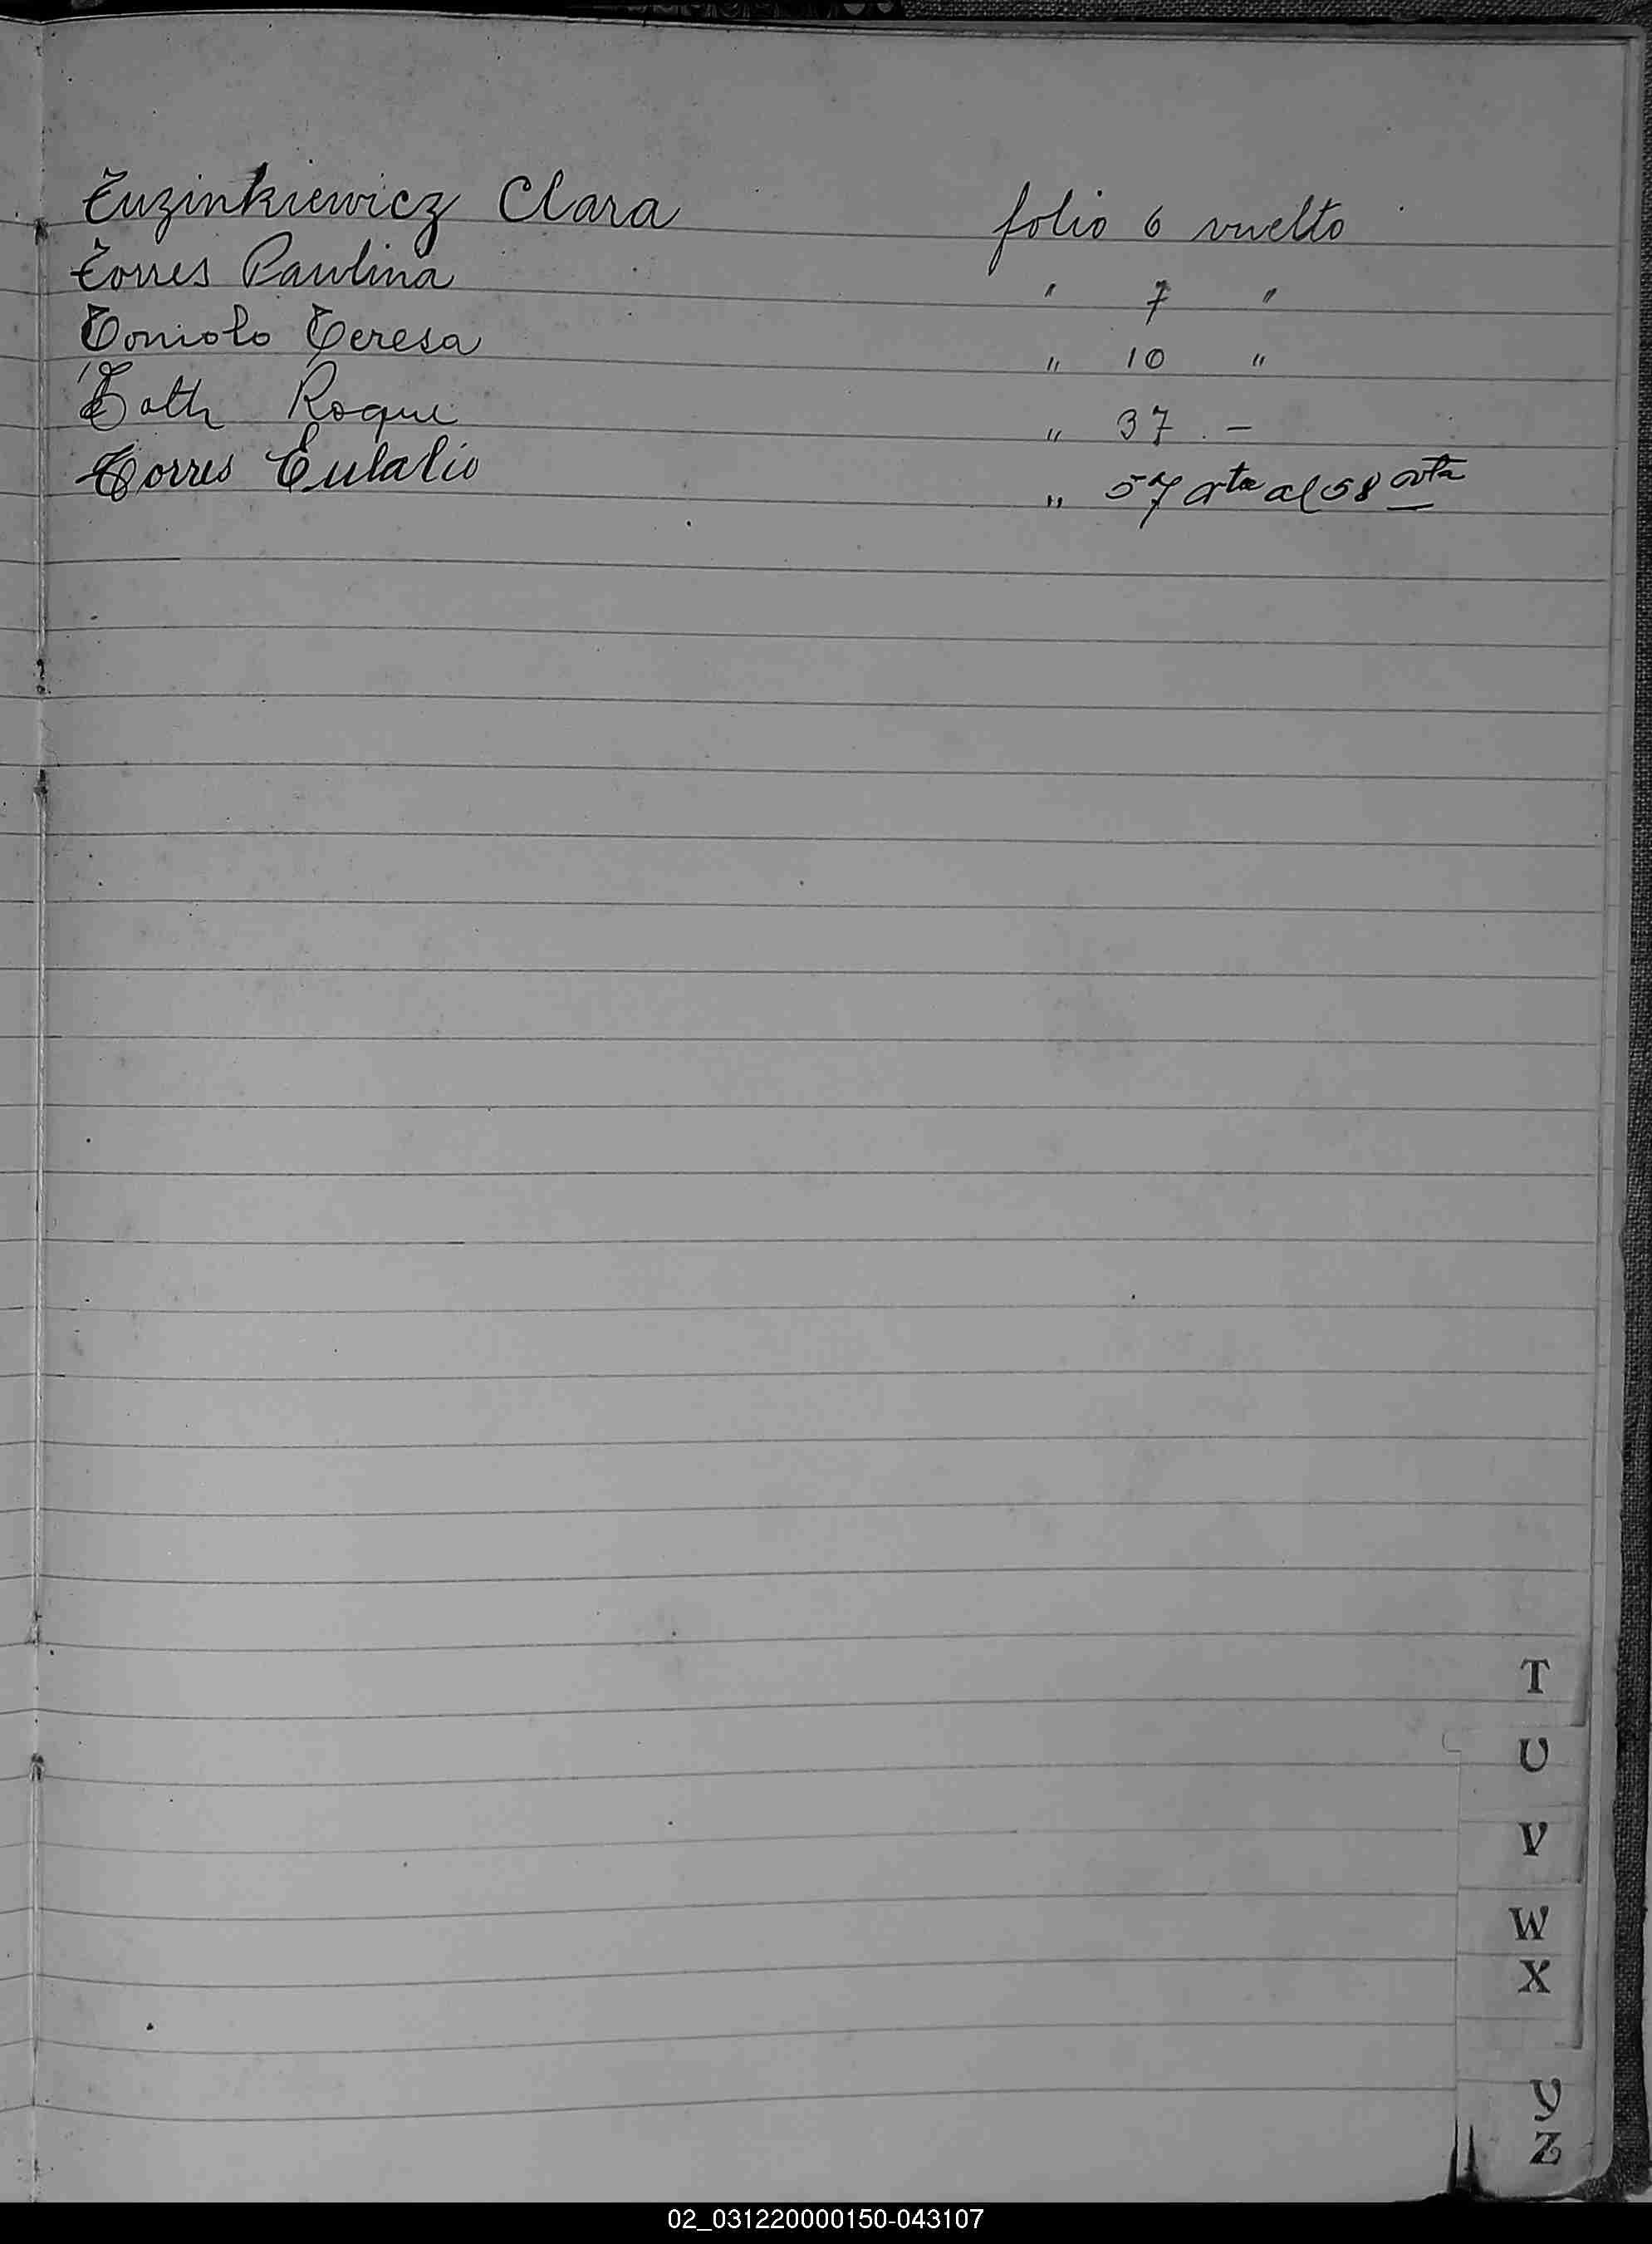 Tuzinkiewicz Clara folio 6 vuelto
Torres Paulina " 7 "
Toniolo Teresa " 10 "
Toth Roque " 37 . –
Torres Eulalio " 57 vta al 58 vta
T
U
V
W
X
Y
Z
02_031220000150-043107